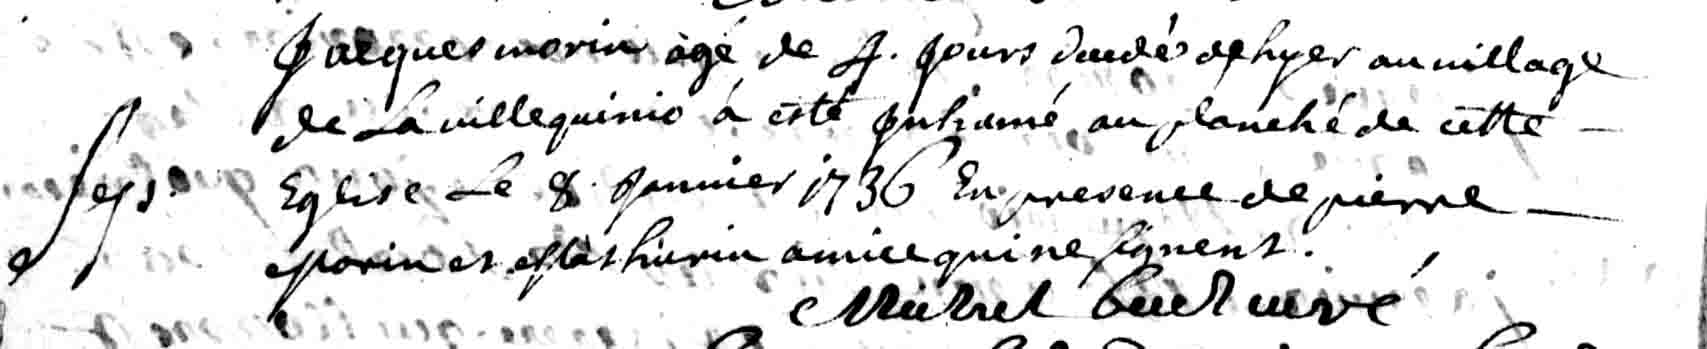 Jacques morin agé de 4. Jours decedé d'hyer au village
de La ville quinio à esté Inhumé au planché de cette
Eglise Le 8. Janvier 1736 En presence de pierre
Morin et Mathurin amice qui ne signent.
Michel